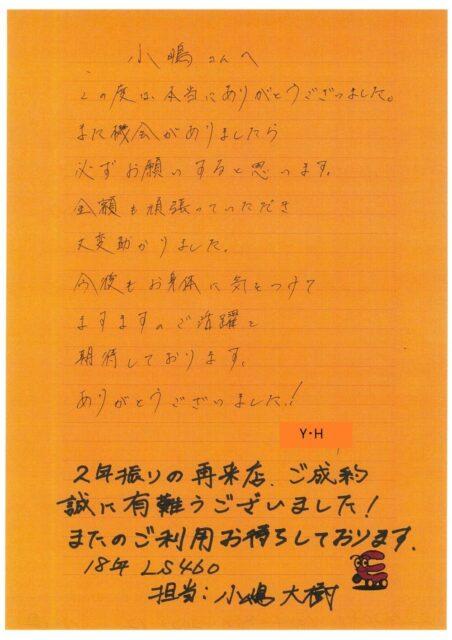 小嶋さんへ
この度は、本当にありがとうございました。
また機会がありましたら
必ずお願いすると思います。
金額も頑張っていただき
大変助かりました。
今後もお身体に気をつけて
ますますのご活躍を
期待しております。
ありがとうございました!
Y・H
2年振りの再来店、ご成約
誠に有難うございました!
またのご利用お待ちしております。
18年 LS460
担当:小嶋 大樹